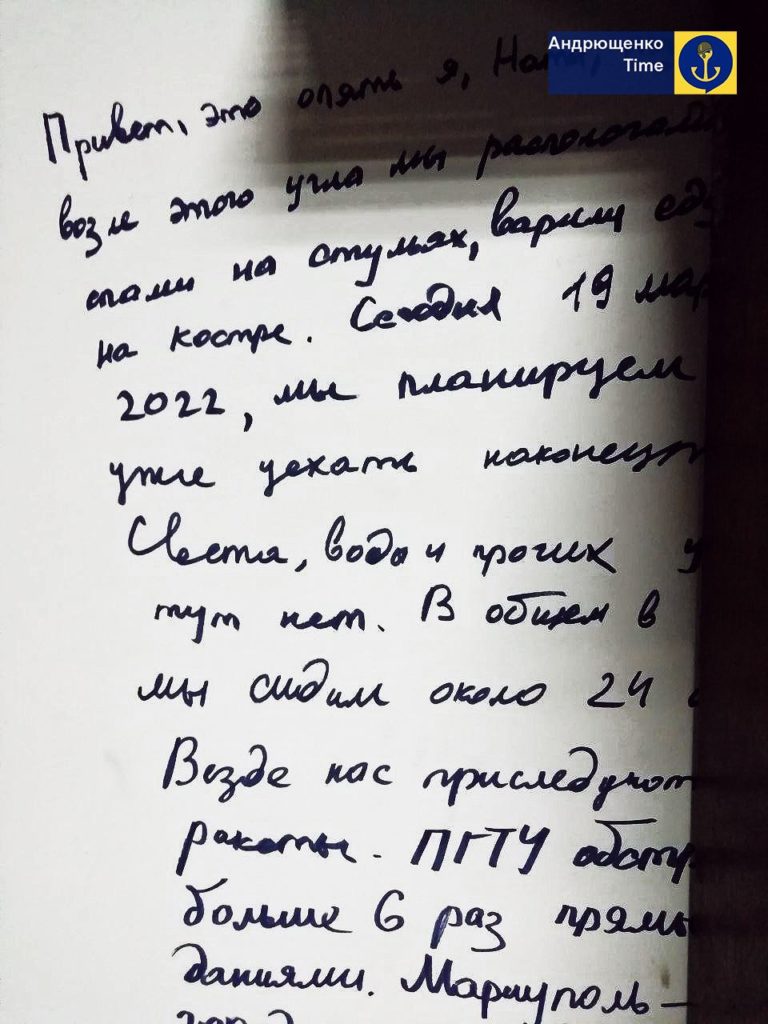 Андрющенко
Time
Привет, это опять я,
возле этого угла мы
спали на стульях, варили
на костре. Сегодня 19
2022, мы планируем
уже уехать
Света, воды и прочих
тут нет. В общем в
мы сидим около 24
Везде нас приследуют
ракеты. ПГТУ
больше 6 раз
даниями. Мариуполь-